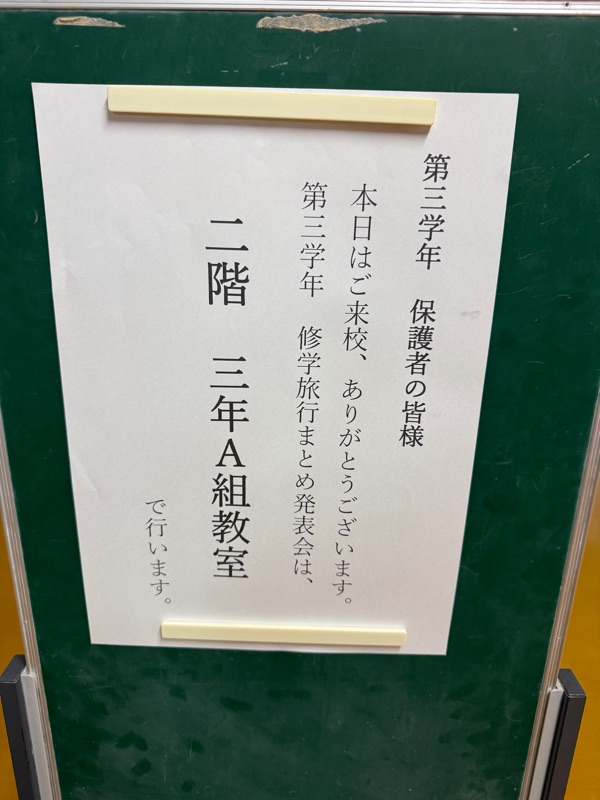 第三学年　保護者の皆様
本日はご来校、ありがとうございます。
第三学年　修学旅行まとめ発表会は、
二階　三年A組教室
で行います。